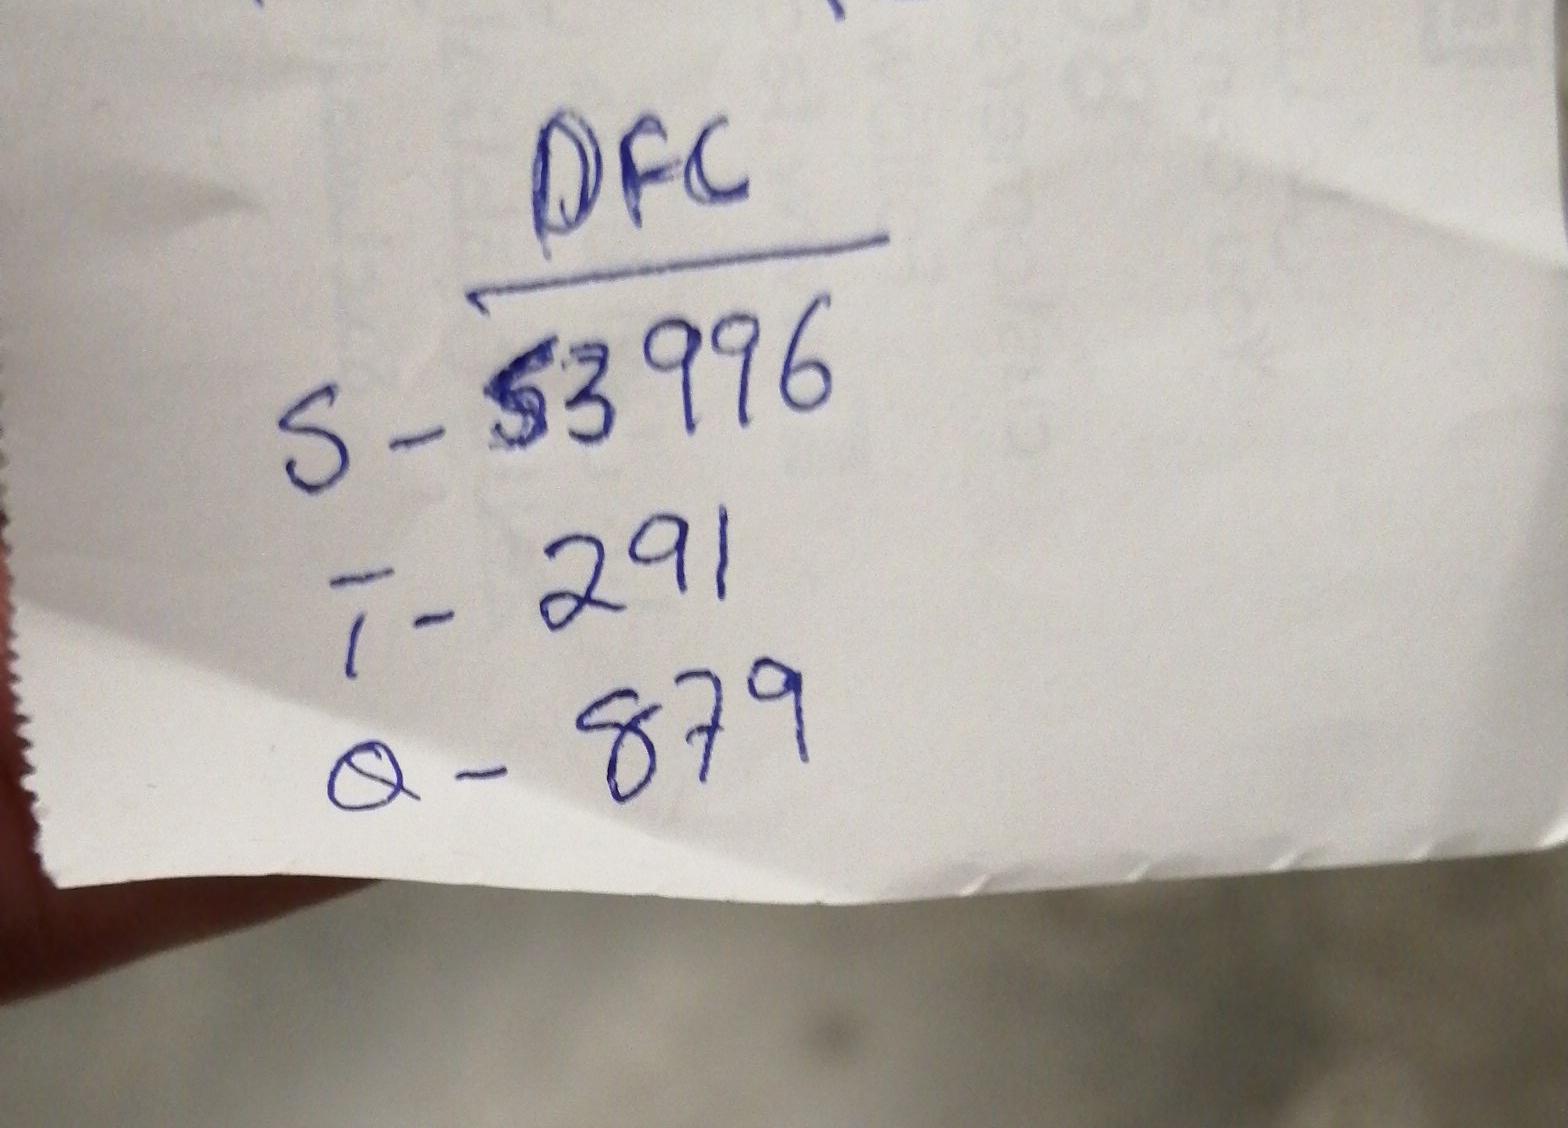 DFC
S - 53996
T - 291
Q - 879